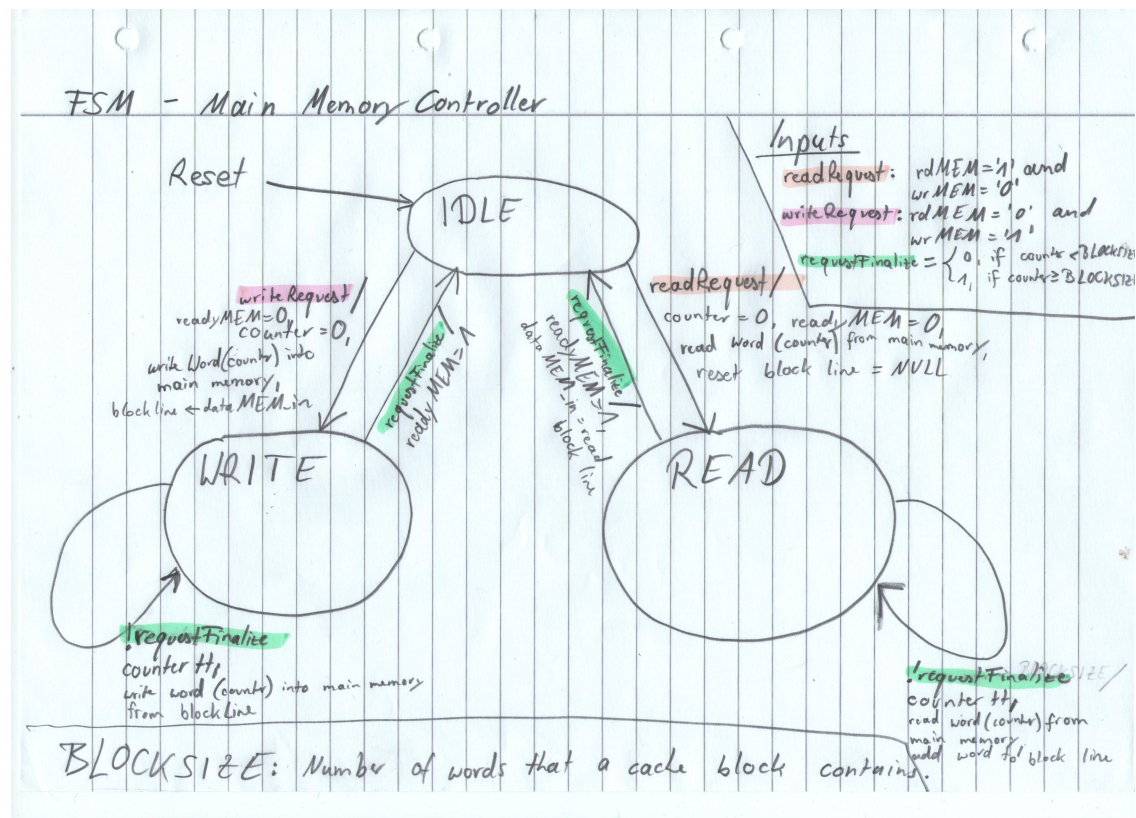 FSM - Main Memory Controller
Inputs
readRequest: rdMEM='1' and
wrMEM='0'
writeRequest: rdMEM='0' and
wrMEM='1'
requestFinalize = { 0, if counter < BLOCKSIZE
1, if counter ≥ BLOCKSIZE
Reset
IDLE
writeRequest/
readyMEM=0,
counter=0,
write Word(counter) into
main memory,
block line ← dataMEM_in
requestFinalize/
readyMEM=1
requestFinalize/
readyMEM=1,
dataMEM_in = read
block line
readRequest/
counter = 0, readyMEM=0,
read word (counter) from main memory,
reset block line = NULL
WRITE
READ
!requestFinalize
counter ++,
write word (counter) into main memory
from blockLine
BLOCKSIZE/
!requestFinalize
counter ++,
read word (counter) from
main memory
add word to block line
BLOCKSIZE: Number of words that a cache block contains.